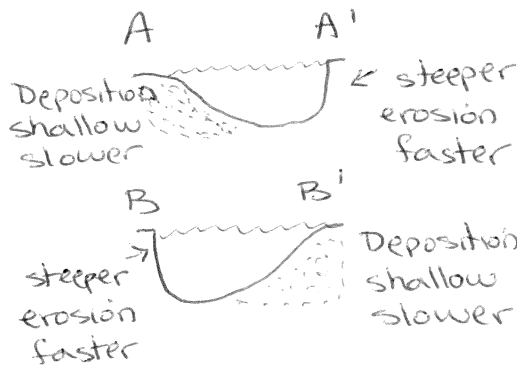 A A'
Deposition
shallow
slower
steeper
erosion
faster
B B'
steeper
erosion
faster
Deposition
shallow
slower